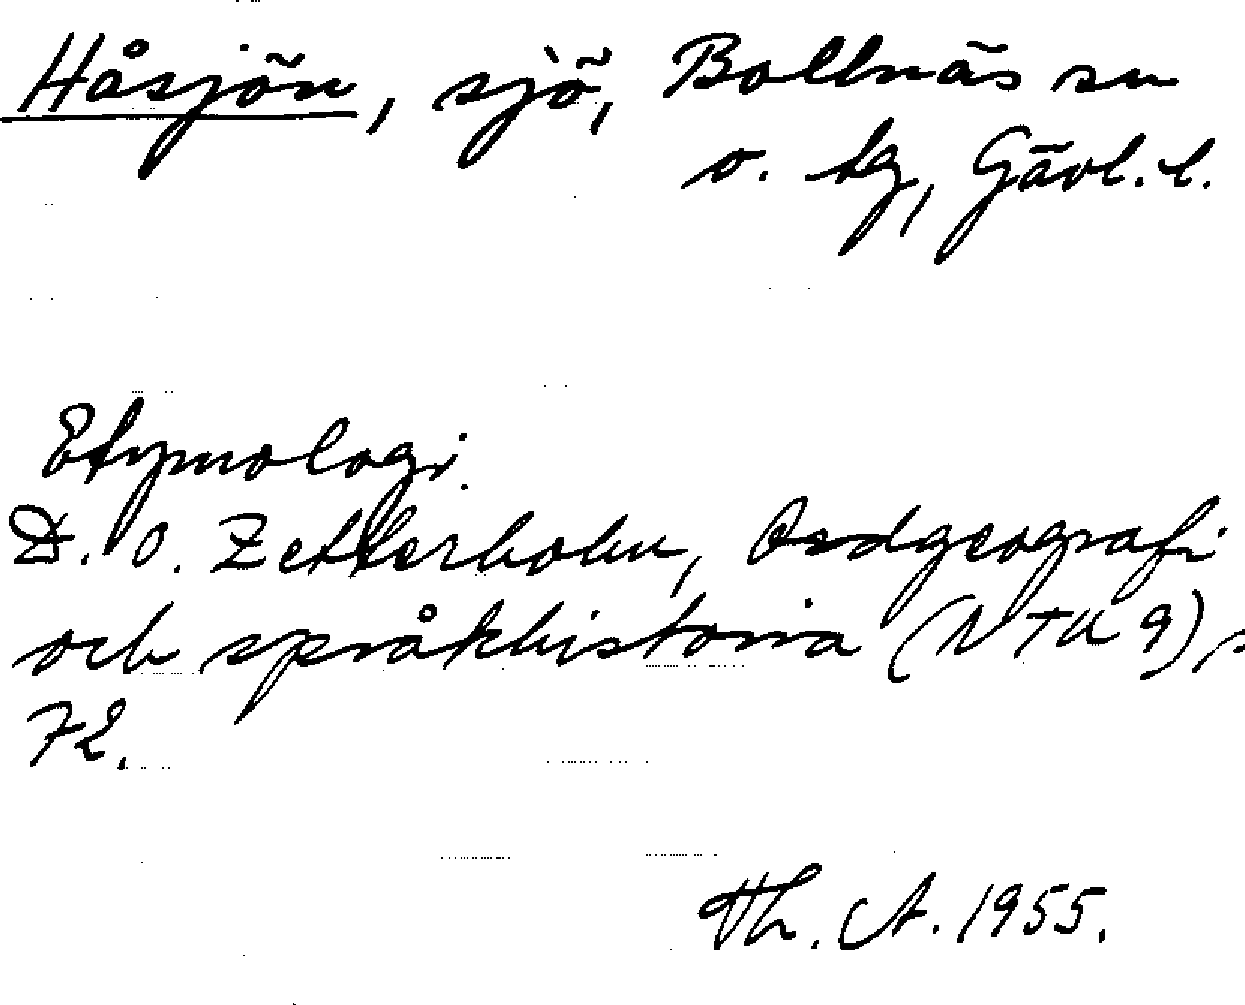 Håsjön, sjö, Bollnäs sn
o. tg, Gävl. l.
Etymologi.
D. O. Zetterholm, Ordgeografi
och språkhistoria (NTU 9) s
72.
Th. A. 1955.